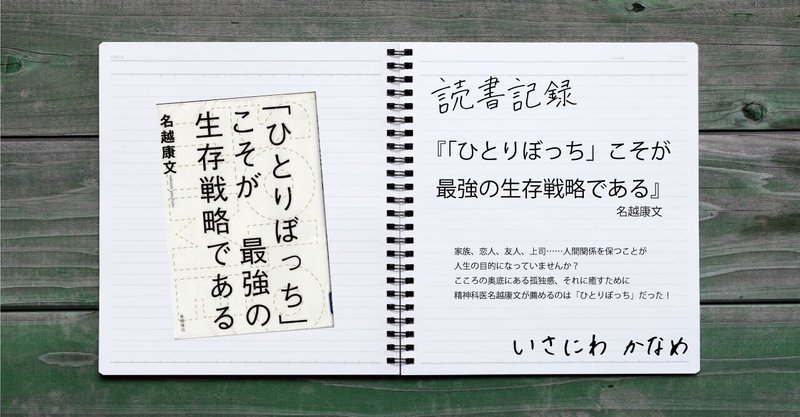 「ひとりぼっち」
こそが 最強の
生存戦略である
名越康文
読書記録
『「ひとりぼっち」こそが
最強の生存戦略である』
名越康文
家族、恋人、友人、上司……人間関係を保つことが
人生の目的になっていませんか？
こころの奥底にある孤独感、それに癒すために
精神科医名越康文が薦めるのは「ひとりぼっち」だった！
いさにわ かなめ